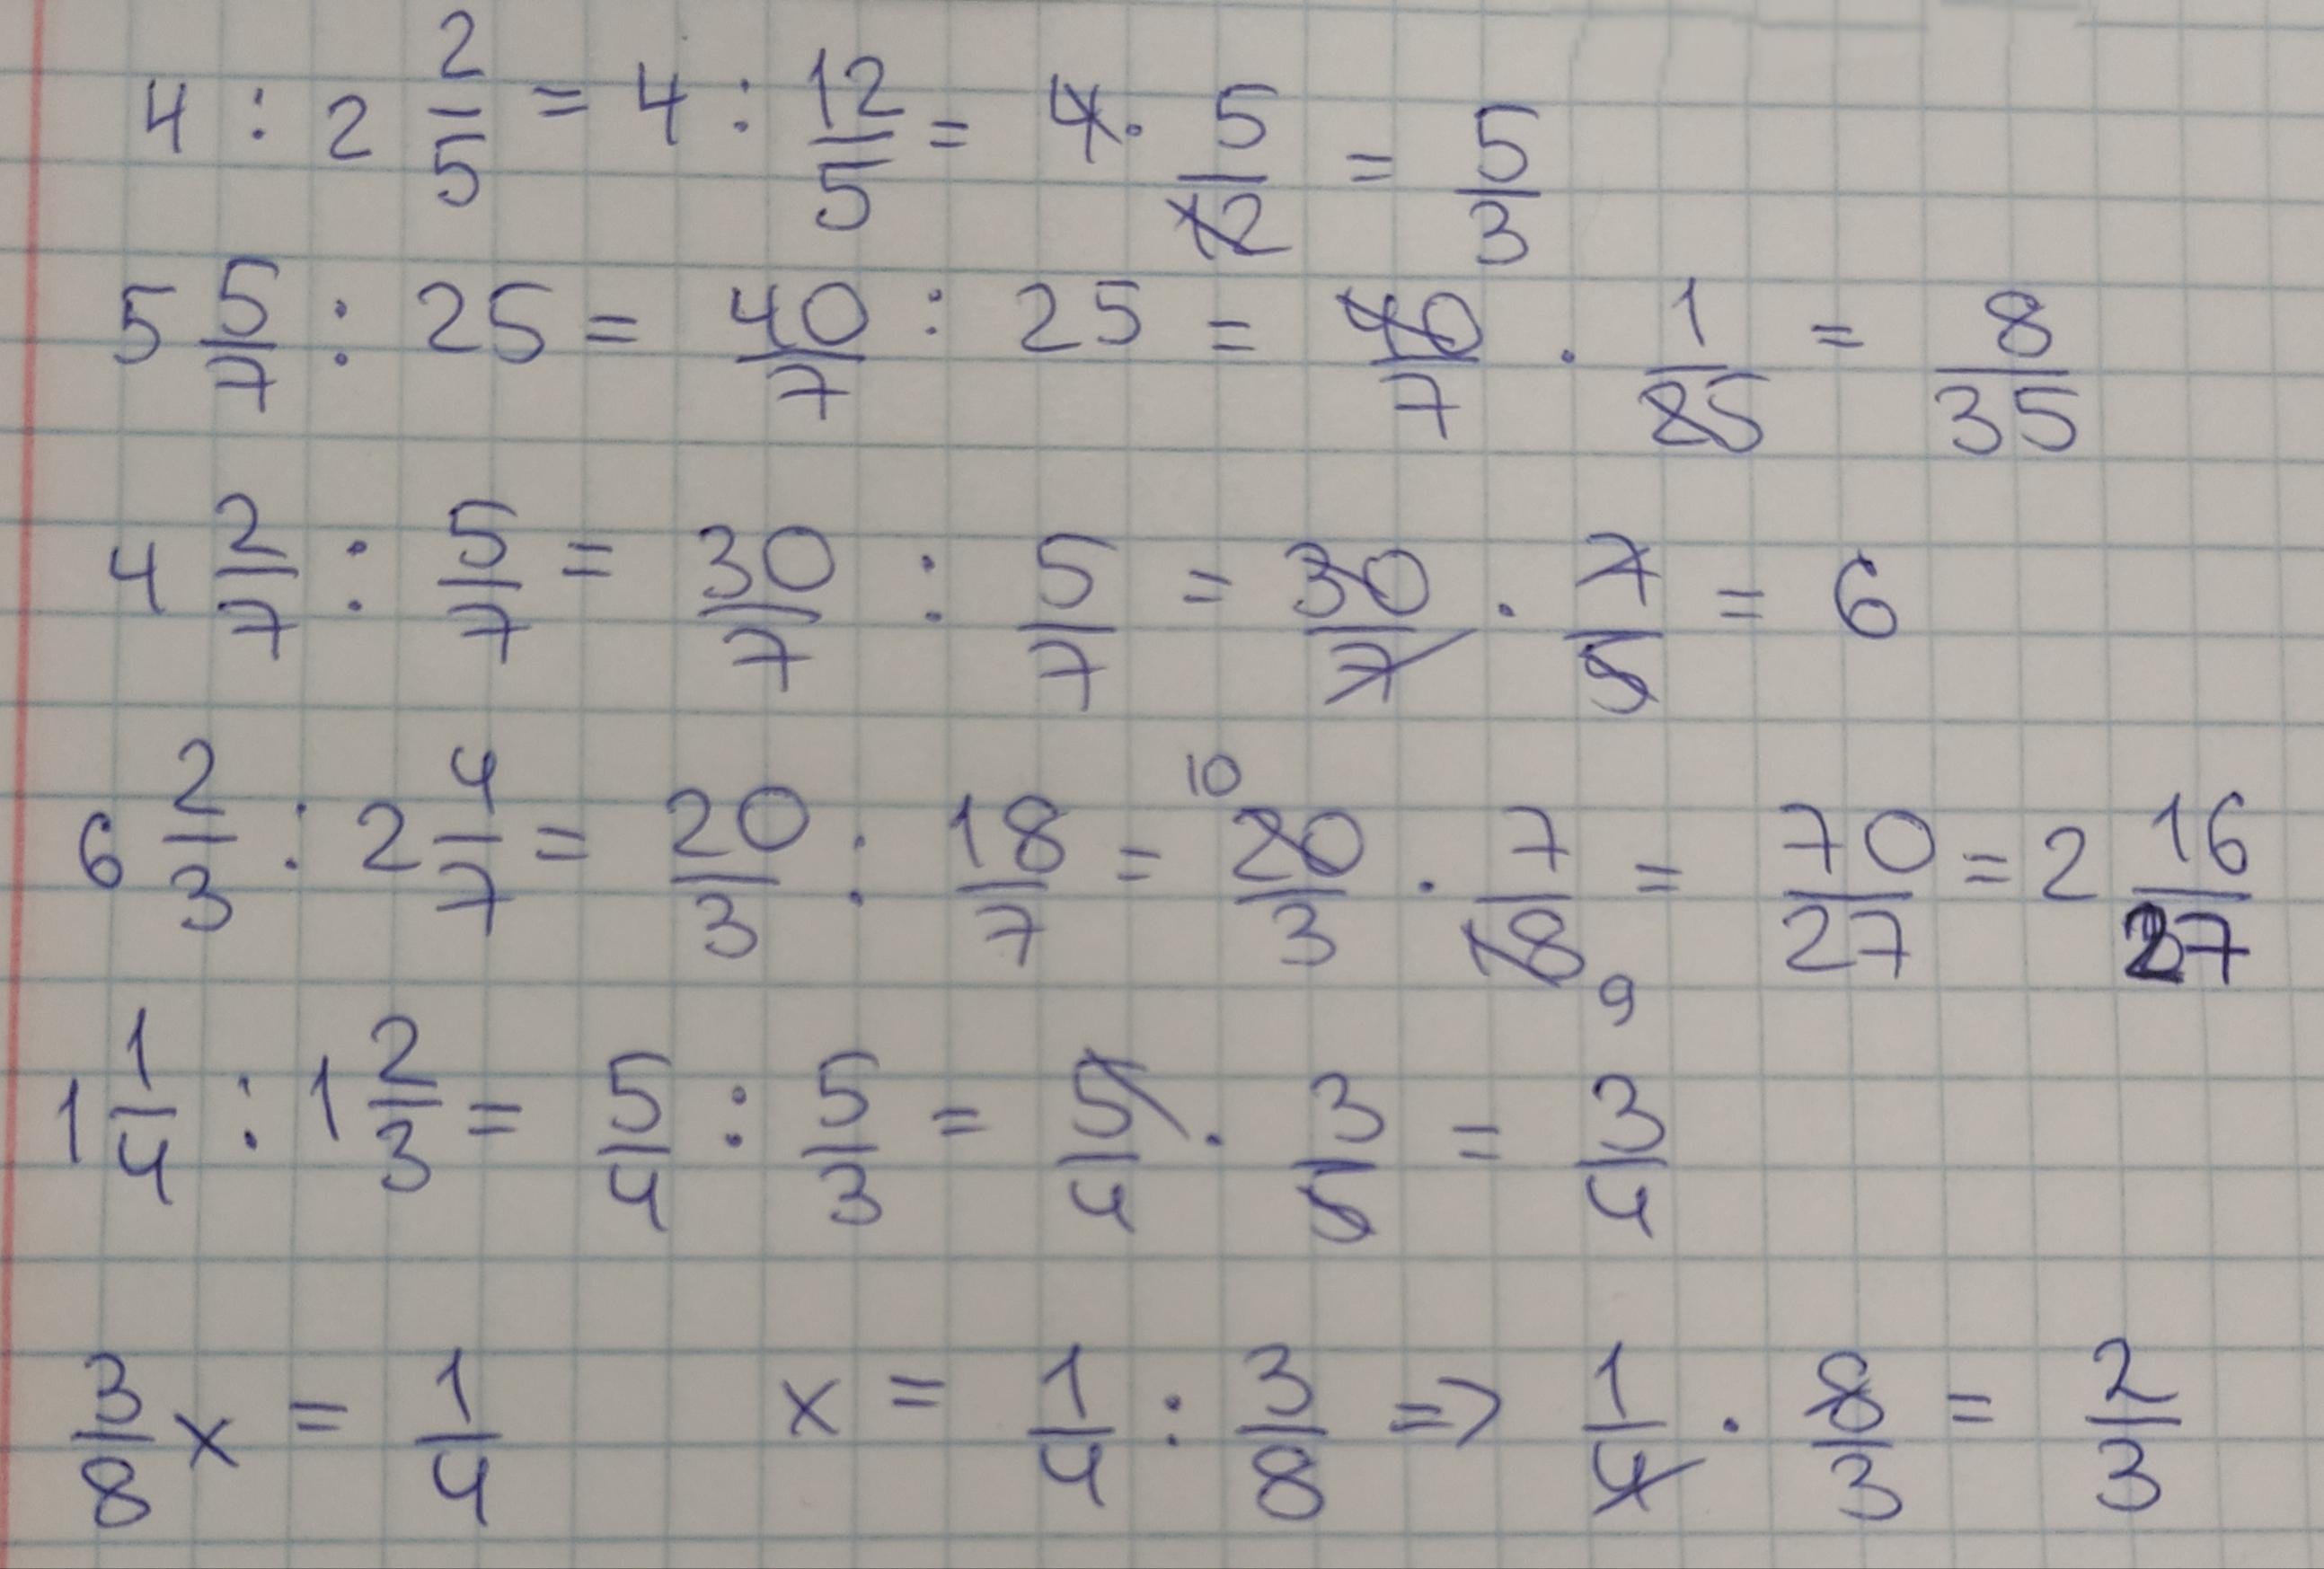 4 : 2 2/5 = 4 : 12/5 = 4 · 5/12 = 5/3
5 5/7 : 25 = 40/7 : 25 = 40/7 · 1/25 = 8/35
4 2/7 : 5/7 = 30/7 : 5/7 = 30/7 · 7/5 = 6
6 2/3 : 2 4/7 = 20/3 : 18/7 = 10 20/3 · 7/18 9 = 70/27 = 2 16/27
1 1/4 : 1 2/3 = 5/4 : 5/3 = 5/4 · 3/5 = 3/4
3/8 x = 1/4 x = 1/4 : 3/8 => 1/4 · 8/3 = 2/3